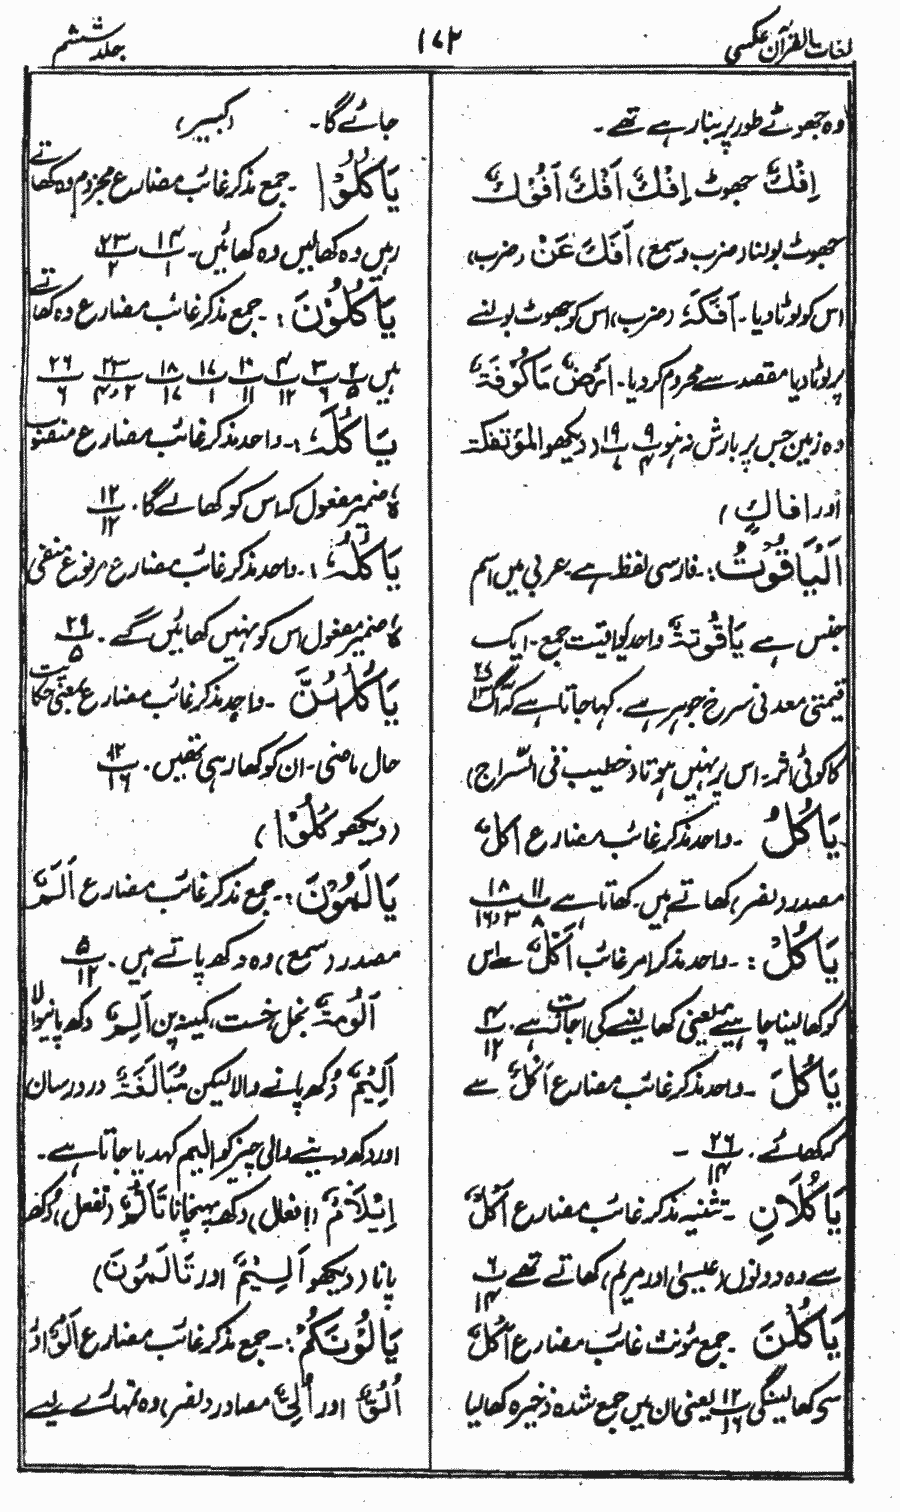 لغات القرآن عکسی
۱۷۲
جلد ششم
وہ جھوٹے طور پر بنا رہے تھے۔
اِفْكٌ جھوٹ اِفْكٌ اَفْكٌ اَفُوْكٌ
جھوٹ بولنا (ضرب و سمع) اَفَكَ عَنْ (ضرب)
اس کو لوٹا دیا۔ اَفَكَهٗ (ضرب)، اس کو جھوٹ بولنے
پر لوٹا دیا مقصد سے محروم کر دیا۔ اَرْضٌ مَاْكُوْفَةٌ
وہ زمین جس پر بارش نہ ہو ۹/۴ ۱۹/۷ (دیکھو المؤتفکۃ
اور افاكٍ)
اَلْیَاقُوْتُ:۔ فارسی لفظ ہے۔ عربی میں اسم
جنس ہے یَاقُوْتَةٌ واحد یواقیت جمع۔ ایک
قیمتی معدنی سرخ جوہر ہے۔ کہا جاتا ہے کہ آگ ۲۷/۱۳
کا کوئی اثر۔ اس پر نہیں ہوتا (خطیب فی السّراج)
یَاْكُلُ ۔ واحد مذکر غائب مضارع اَكْلٌ
مصدر (نصر) کھاتے ہیں۔ کھاتا ہے ۱۱/۸ ۱۸/۳ و ۱۶
یَاْكُلْ:۔ واحد مذکر امر غائب اَكْلٌ سے اس
کو کھا لینا چاہیے بمعنی کھا لینے کی اجازت ہے۔ ۴/۱۲
یَاْكُلَ ۔ واحد مذکر غائب مضارع اَكْلٌ سے
کہ کھائے۔ ۲۶/۱۴ ۔
یَاْكُلَانِ ۔ تثنیہ مذکر غائب مضارع اَكْلٌ
سے وہ دونوں (عیسیٰ اور مریم) کھاتے تھے ۶/۱۴
یَاْكُلْنَ ۔ جمع مؤنث غائب مضارع اَكْلٌ
سے کھا لینگی ۱۲/۱۶ یعنی ان میں جمع شدہ ذخیرہ کھا لیا
جائے گا۔ (کبیر)
یَاْكُلُوْا ۔ جمع مذکر غائب مضارع مجزوم وہ کھاتے
رہیں وہ کھا لیں وہ کھائیں۔ ۱۴/۱ ۲۳/۲
یَاْكُلُوْنَ:۔ جمع مذکر غائب مضارع وہ کھاتے
ہیں ۲/۵ ۳/۶ ۴/۱۲ ۱۰/۱۱ ۱۷/۱ ۱۸/۱۷ ۲۳/۲ و ۴ ۲۶/۶
یَاْكُلَهٗ:۔ واحد مذکر غائب مضارع منصوب
ہٗ ضمیر مفعول کہ اس کو کھالے گا۔ ۱۲/۱۲
یَاْكُلُهٗ:۔ واحد مذکر غائب مضارع مرفوع منفی
ہٗ ضمیر مفعول اس کو نہیں کھائیں گے۔ ۲۹/۵
یَاْكُلْهُنَّ ۔ واحد مذکر غائب مضارع بمعنی حکایت
حال ماضی۔ ان کو کھا رہی تھیں۔ ۱۲/۱۶
(دیکھو كُلُوْا)
یَاْلَمُوْنَ:۔ جمع مذکر غائب مضارع اَلَمٌ
مصدر (سمع) وہ دکھ پاتے ہیں۔ ۵/۱۲
اَلُوْمَةٌ بخل، خست، کمینہ پن اَلِمٌ دکھ پانیوالا
اَلِیْمٌ دُکھ پانے والا لیکن مُبَالَغَةً درد رسان
اور دکھ دینے والی چیز کو الیم کہہ دیا جاتا ہے۔
اِیْلَامٌ (افعال) دکھ پہنچانا تَاَلُّمٌ (تفعل) دُکھ
پانا (دیکھو اَلِیْمٌ اور تَاْلَمُوْنَ)
یَاْلُوْنَكُمْ:۔ جمع مذکر غائب مضارع اَلْوٌ اور
اُلُوٌّ اور اُلِیٌّ مصادر (نصر) وہ تمہارے لیے